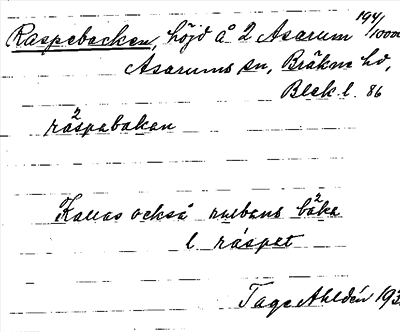 Raspebacken, höjd å 2 Asarum 194/10000
Asarums sn, Bräkne hd,
Blek l. 86
ráspabakan
Kallas också báka
l ráspet
Tage Ahldén 193